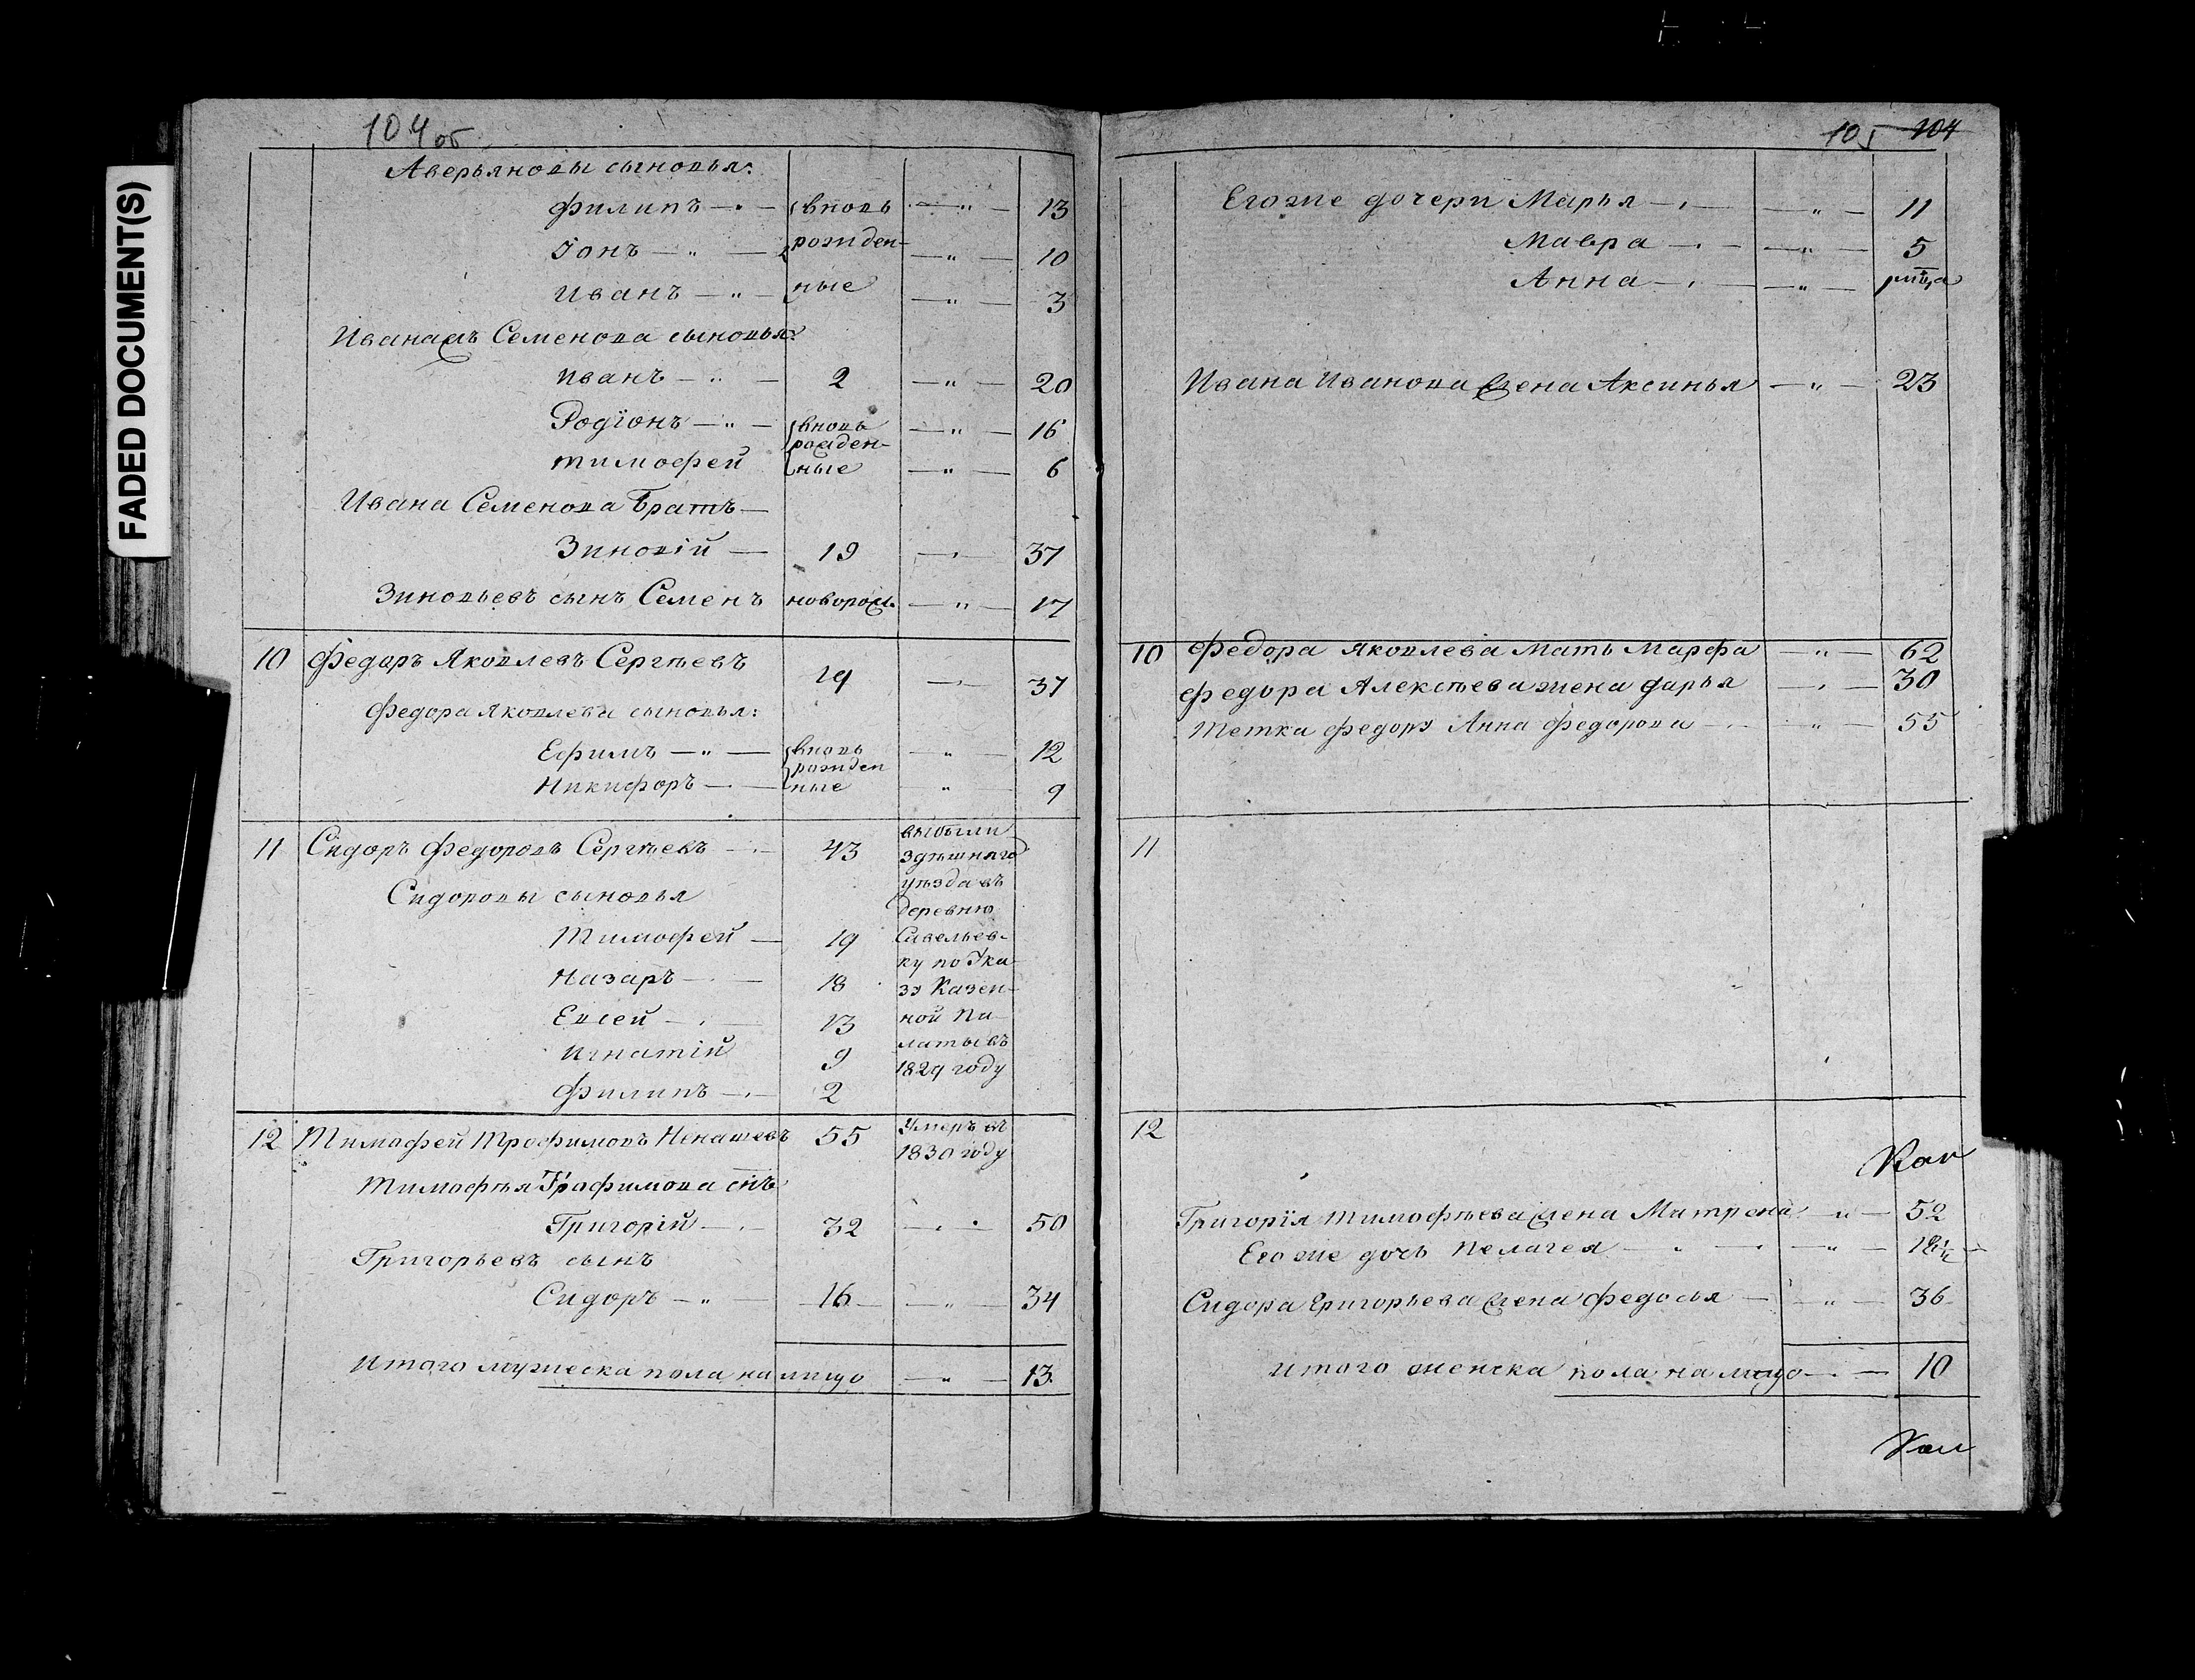 FADED DOCUMENT(S)
104 об
Аверьяновы сыновья:
Филипъ 13
вновь
рожден-
ные
Іонъ 10
Иванъ 3
Ивана Семенова сыновья:
Иванъ 2 20
Родіонъ 16
вновь
рожден-
ные
Тимофей 6
Ивана Семенова Братъ
Зиновій 19 37
Зиновьевъ сынъ Семенъ новорож. 17
10 Федоръ Яковлевъ Сергѣевъ 19 37
Федора Яковлева сыновья:
Ефимъ 12
вновь
рожден
ные
Никифоръ 9
11 Сидоръ Федоровъ Сергѣевъ 43
Сидоровы сыновья
Тимофей 19
Назаръ 18
Евсей 13
Игнатій 9
Филипъ 2
выбыли
здѣшняго
уѣзда въ
деревню
Савельев-
ку по Ука-
зу Казен-
ной Па-
латы въ
1829 году
12 Тимафей Трофимовъ Ненашевъ 55
Умеръ въ
1830 году
Тимофѣя Трафимова снъ
Григорій 32 50
Григорьевъ сынъ
Сидоръ 16 34
Итого мужеска пола на лицо 13
105 104
Егоже дочери Марья 11
Мавра 5
Анна
Ивана Иванова жена Аксинья 23
10 Федора Яковлева Мать Марфа 62
Федора Алексѣева жена Дарья 30
Тетка Федора Анна Федорова 55
11
12
Григорія Тимофѣева жена Матрена 52
Егоже дочь Пелагея
Сидора Григорьева жена Федосья 36
Итого женска пола на лицо 10